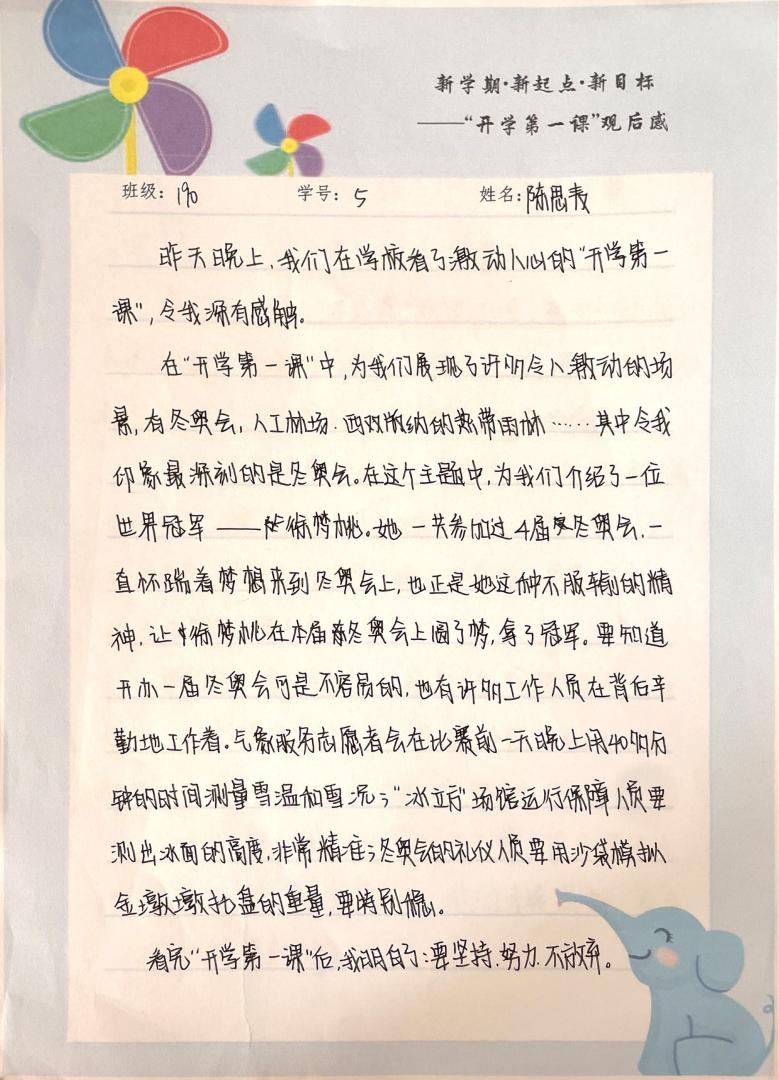 新学期·新起点·新目标
——“开学第一课”观后感
班级：190 学号：5 姓名：陈思
昨天晚上，我们在学校看了激动人心的“开学第一
课”，令我深有感触。
在“开学第一课”中，为我们展现了许多令人激动的场
景，有冬奥会，人工林场．西双版纳的热带雨林……其中令我
印象最深刻的是冬奥会。在这个主题中，为我们介绍了一位
世界冠军——徐梦桃。她一共参加过4届冬奥会，一
直怀踹着梦想来到冬奥会上，也正是她这种不服输的精
神，让徐梦桃在本届冬奥会上圆了梦，拿了冠军。要知道
开办一届冬奥会可是不容易的，也有许多工作人员在背后辛
勤地工作着。气象服务志愿者会在比赛前一天晚上用40多分
钟的时间测量雪温和雪况；“冰立方”场馆运行保障人员要
测出冰面的高度，非常精准；冬奥会的礼仪人员要用沙袋模拟
金墩墩托盘的重量，要特别稳。
看完“开学第一课”后，我明白了：要坚持．努力．不放弃。